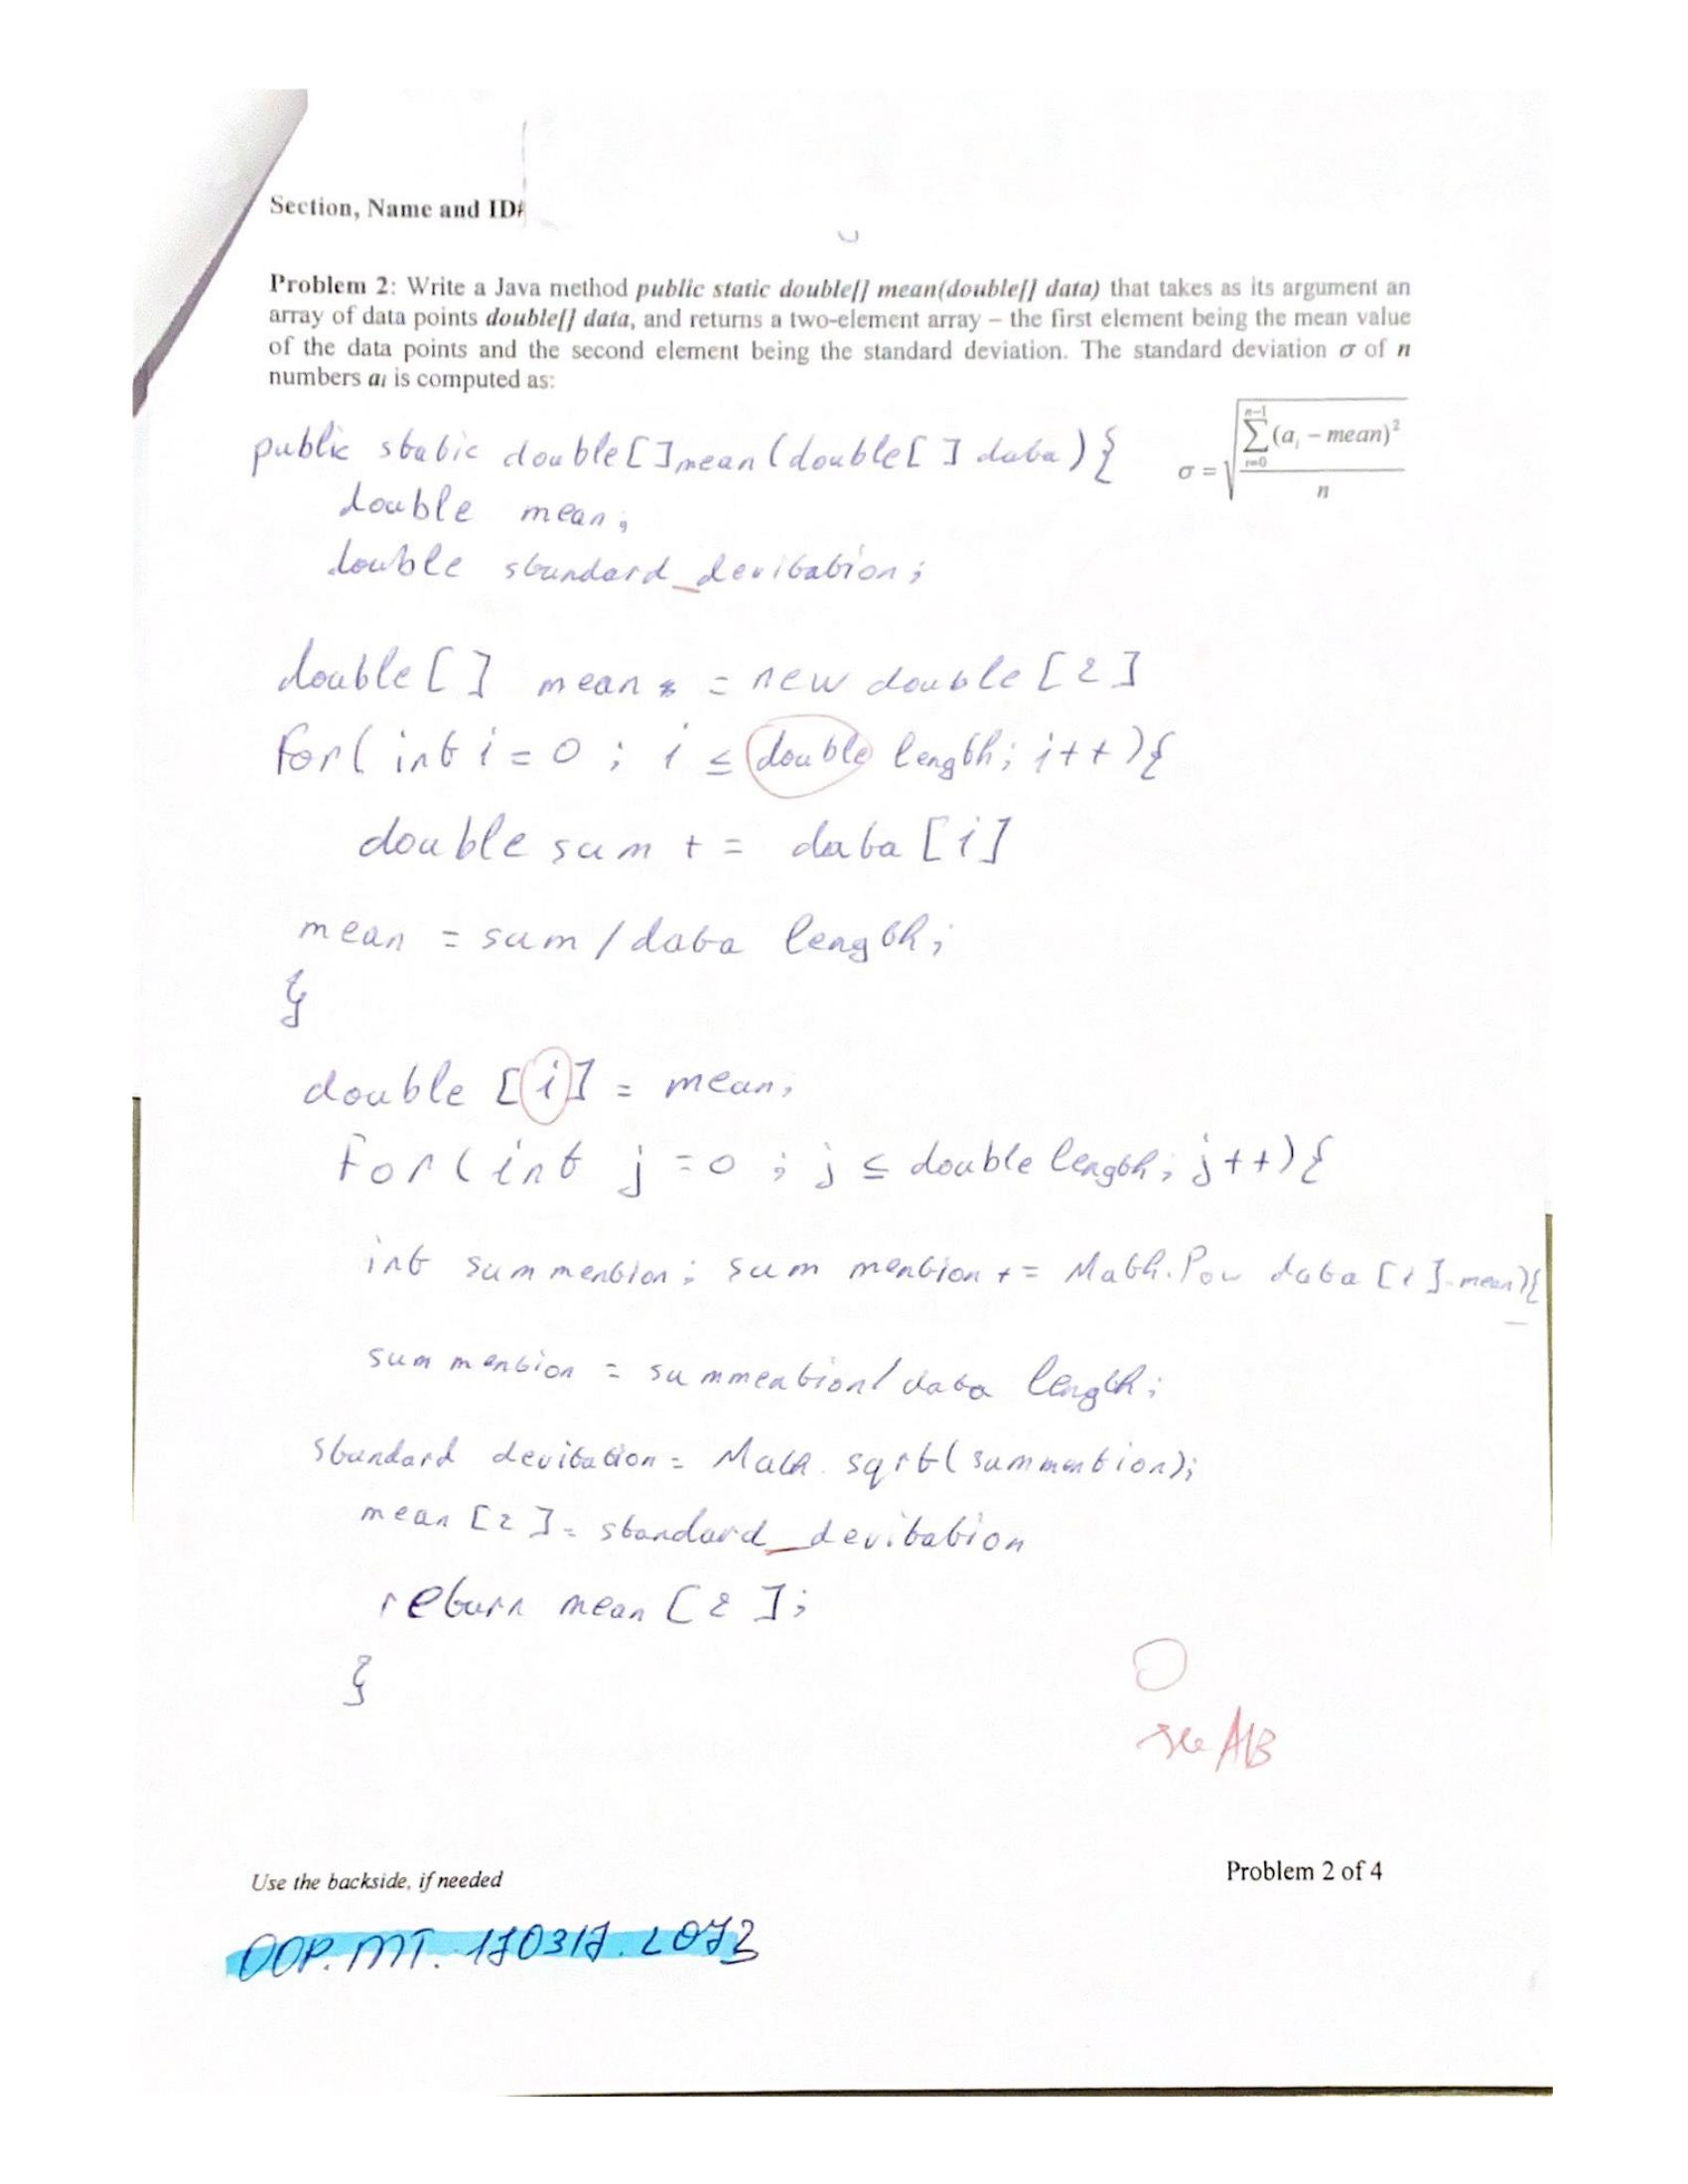 Section, Name and ID#
Problem 2: Write a Java method public static double[] mean(double[] data) that takes as its argument an
array of data points double[] data, and returns a two-element array – the first element being the mean value
of the data points and the second element being the standard deviation. The standard deviation σ of n
numbers ai is computed as:
σ = √(∑(ai – mean)² / n) n–1 i=0
public static double[] mean(double[] data){
double mean;
double standard_devitation;
double[] mean = new double[2]
for(int i=0; i ≤ double length; i++){
double sum += data[i]
mean = sum/data length;
}
double [i] = mean;
for(int j=0; j ≤ double length; j++){
int summention; sum mention += Math.Pow data[i]-mean){
summention = summention/data length;
standard devitation = Math.sqrt(summention);
mean[2] = standard_devitation
return mean[2];
}
0
see AB
Use the backside, if needed
Problem 2 of 4
OOP.MT.170317.L072